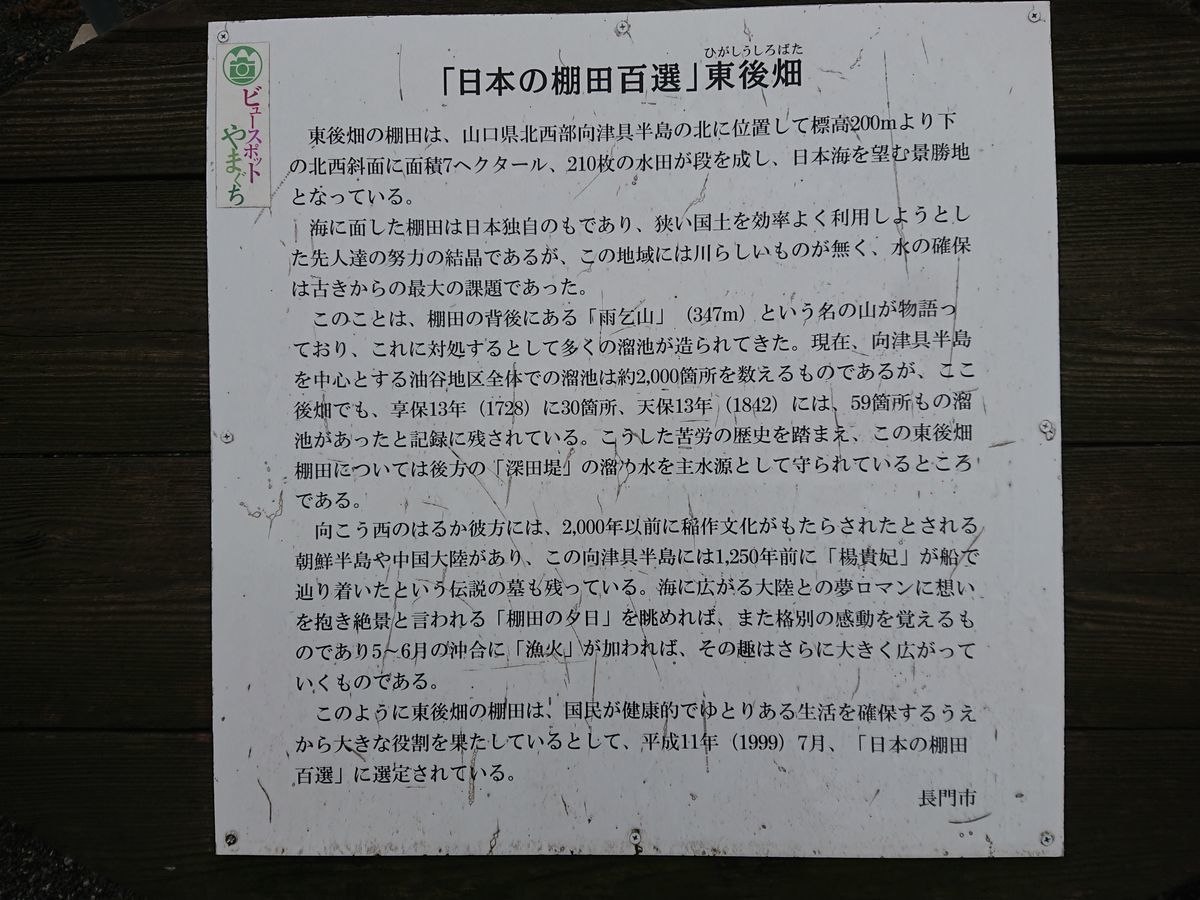 ビュースポット
やまぐち
ひがしうしろばた
「日本の棚田百選」東後畑
東後畑の棚田は、山口県北西部向津具半島の北に位置して標高200mより下
の北西斜面に面積7ヘクタール、210枚の水田が段を成し、日本海を望む景勝地
となっている。
海に面した棚田は日本独自のもであり、狭い国土を効率よく利用しようとし
た先人達の努力の結晶であるが、この地域には川らしいものが無く、水の確保
は古きからの最大の課題であった。
このことは、棚田の背後にある「雨乞山」（347m）という名の山が物語っ
ており、これに対処するとして多くの溜池が造られてきた。現在、向津具半島
を中心とする油谷地区全体での溜池は約2,000箇所を数えるものであるが、ここ
後畑でも、享保13年（1728）に30箇所、天保13年（1842）には、59箇所もの溜
池があったと記録に残されている。こうした苦労の歴史を踏まえ、この東後畑
棚田については後方の「深田堤」の溜め水を主水源として守られているところ
である。
向こう西のはるか彼方には、2,000年以前に稲作文化がもたらされたとされる
朝鮮半島や中国大陸があり、この向津具半島には1,250年前に「楊貴妃」が船で
辿り着いたという伝説の墓も残っている。海に広がる大陸との夢ロマンに想い
を抱き絶景と言われる「棚田の夕日」を眺めれば、また格別の感動を覚えるも
のであり5～6月の沖合に「漁火」が加われば、その趣はさらに大きく広がって
いくものである。
このように東後畑の棚田は、国民が健康的でゆとりある生活を確保するうえ
から大きな役割を果たしているとして、平成11年（1999）7月、「日本の棚田
百選」に選定されている。
長門市